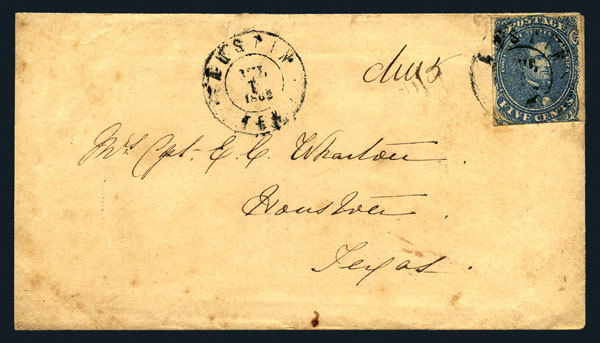 AUSTIN
JUL
1
1862
TEX.
due 5
POSTAGE
FIVE CENTS
Mrs Capt. E. C. Wharton
Houston.
Texas.